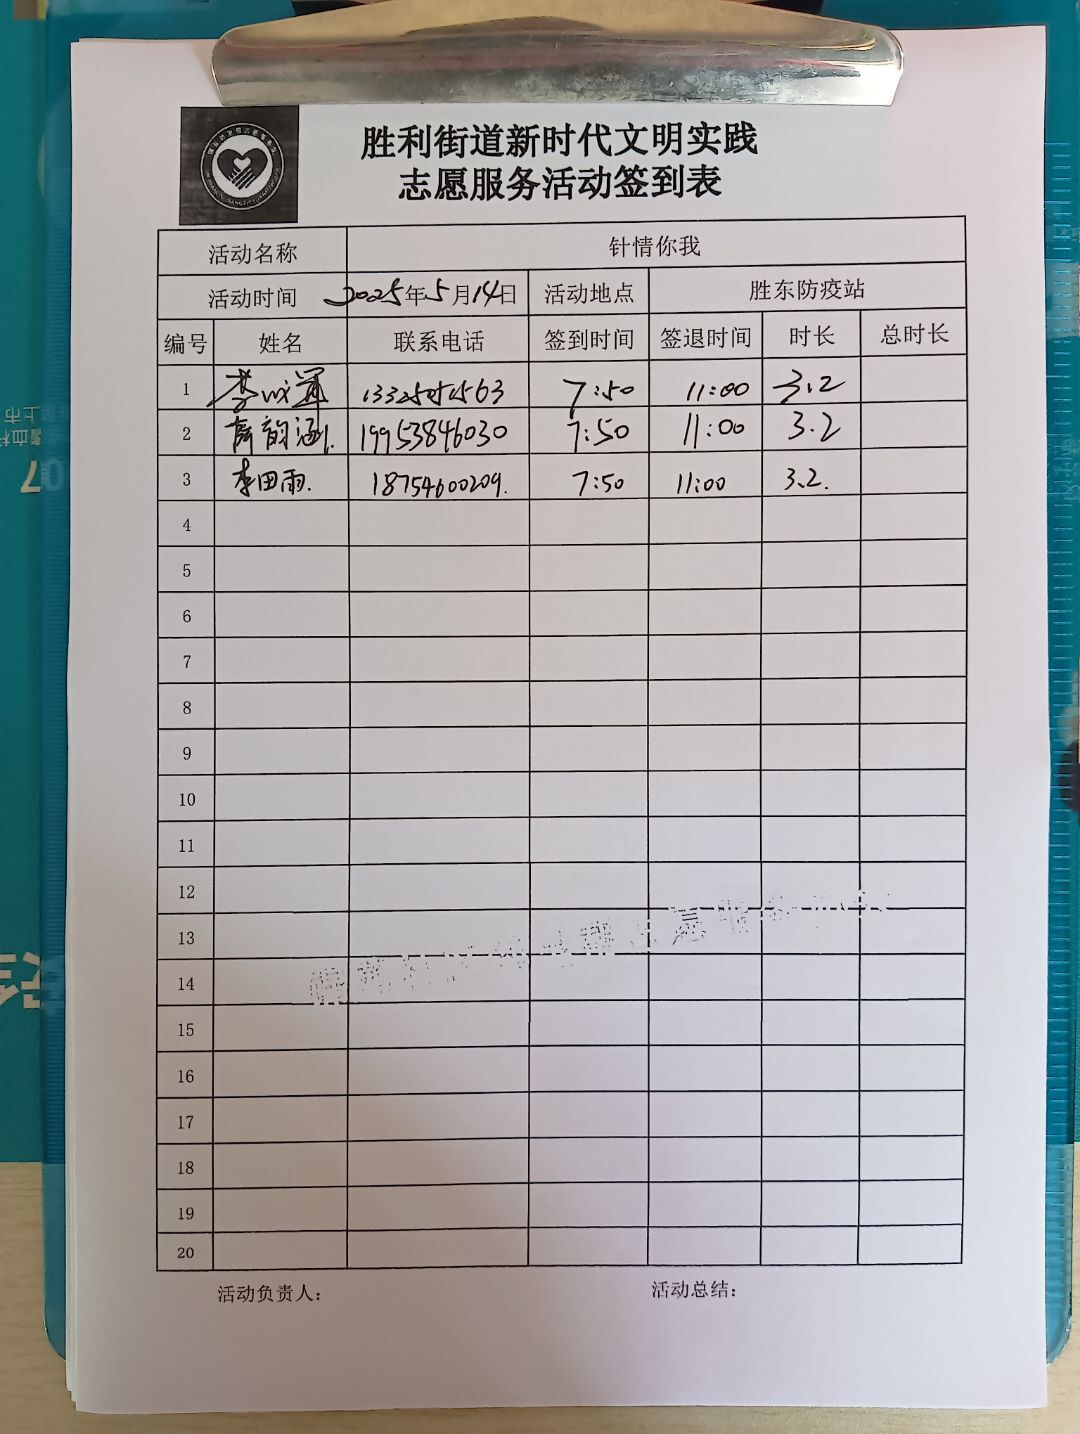 胜利街道新时代文明实践
志愿服务活动签到表
活动名称 针情你我
活动时间 2025年5月14日 活动地点 胜东防疫站
编号 姓名 联系电话 签到时间 签退时间 时长 总时长
1 7:50 11:00 3.2
2 19953846030 7:50 11:00 3.2
3 李田雨. 18754600209. 7:50 11:00 3.2.
4
5
6
7
8
9
10
11
12
13
14
15
16
17
18
19
20
活动负责人: 活动总结: